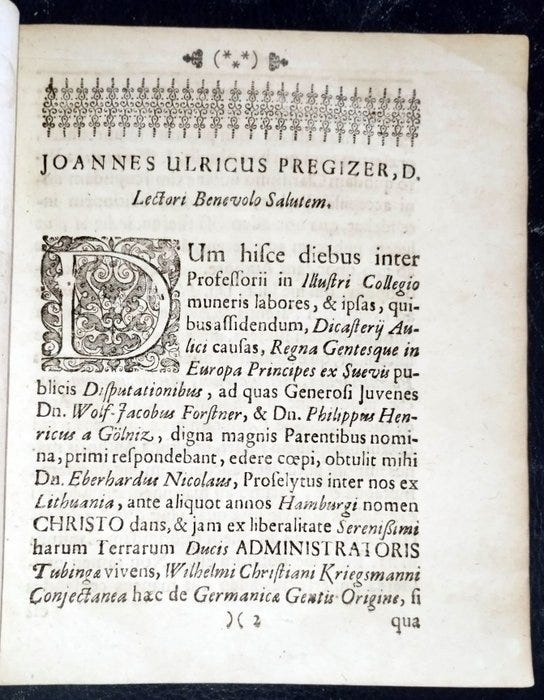 (***)
JOANNES ULRICUS PREGIZER, D.
Lectori Benevolo Salutem.
DUm hisce diebus inter
Professorii in Illustri Collegio
muneris labores, & ipsas, qui-
bus assidendum, Dicasterij Au-
lici causas, Regna Gentesque in
Europa Principes ex Suevis pu-
blicis Disputationibus, ad quas Generosi Juvenes
Dn. Wolf-Jacobus Forstner, & Dn. Philippus Hen-
ricus a Gölniz, digna magnis Parentibus nomi-
na, primi respondebant, edere cœpi, obtulit mihi
Dn. Eberhardus Nicolaus, Proselytus inter nos ex
Lithuania, ante aliquot annos Hamburgi nomen
CHRISTO dans, & jam ex liberalitate Serenissimi
harum Terrarum Ducis ADMINISTRATORIS
Tubingæ vivens, Wilhelmi Christiani Kriegsmanni
Conjectanea hæc de Germanicæ Gentis Origine, si
)( 2 qua